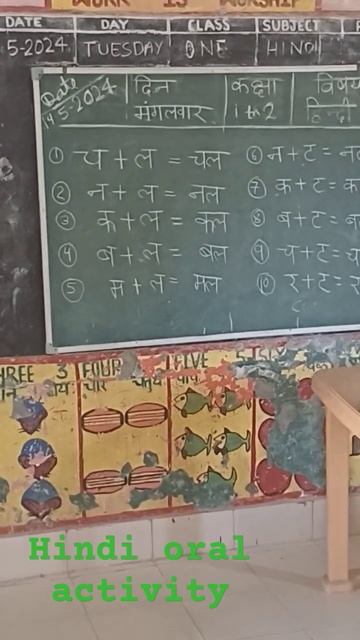 WORK IS WORSHIP
DATE DAY CLASS SUBJECT
5-2024 TUESDAY ONE HINDI
Date दिन कक्षा विषय
14-5-2024 मंगलवार 1 to 2 हिन्दी
① च + ल = चल ⑥ न + ट = न
② न + ल = नल ⑦ क + ट = क
③ क + ल = कल ⑧ ब + ट = ब
④ ब + ल = बल ⑨ च + ट = च
⑤ म + ल = मल ⑩ र + ट = र
THREE 3 FOUR FIVE 5 SIX
चार
Hindi oral
activity